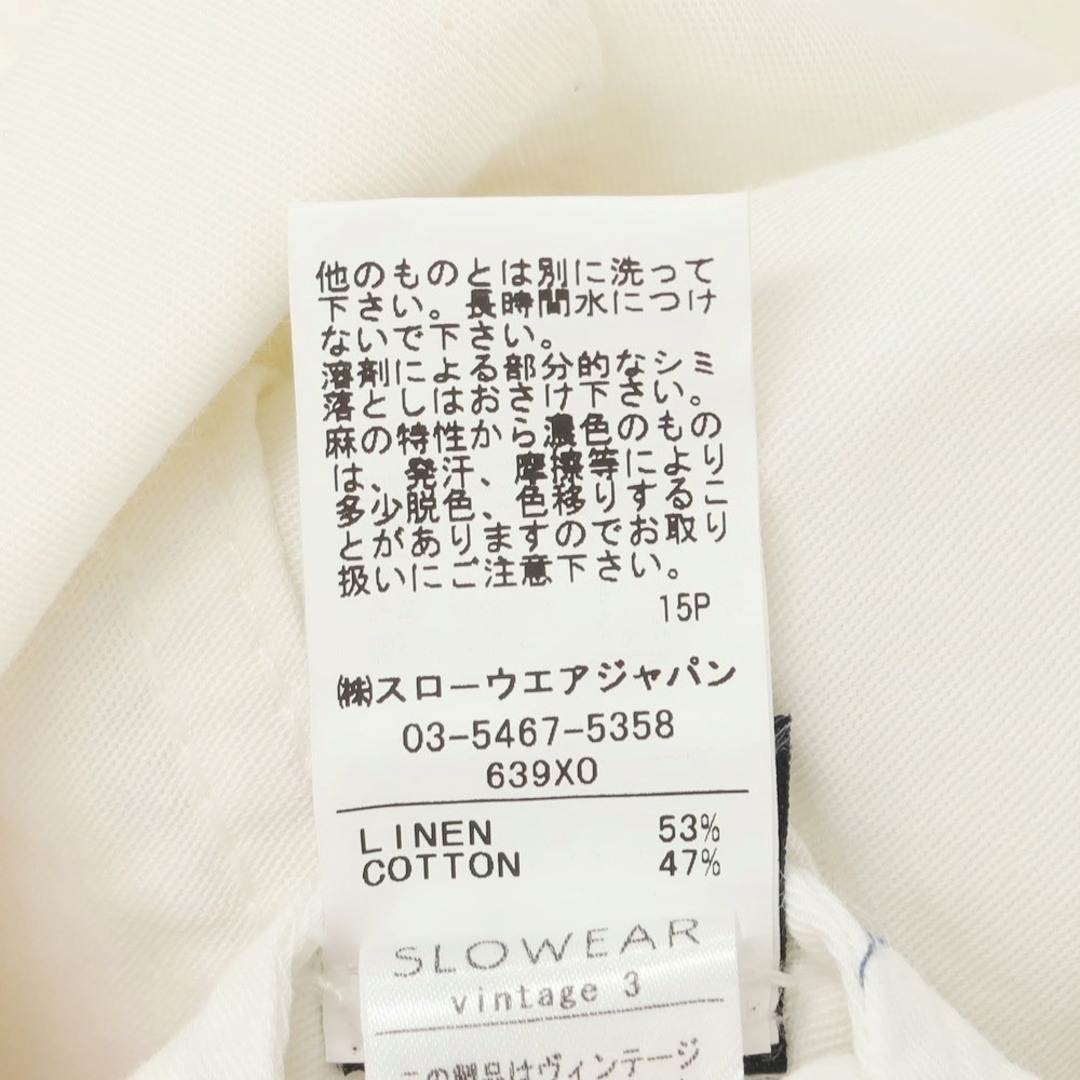 他のものとは別に洗って
下さい。長時間水につけ
ないで下さい。
溶剤による部分的なシミ
落としはおさけ下さい。
麻の特性から濃色のもの
は、発汗、摩擦等により
多少脱色、色移りするこ
とがありますのでお取り
扱いにご注意下さい。
15P
㈱スローウエアジャパン
03-5467-5358
639X0
LINEN 53%
COTTON 47%
SLOWEAR
vintage 3
この製品はヴィンテージ